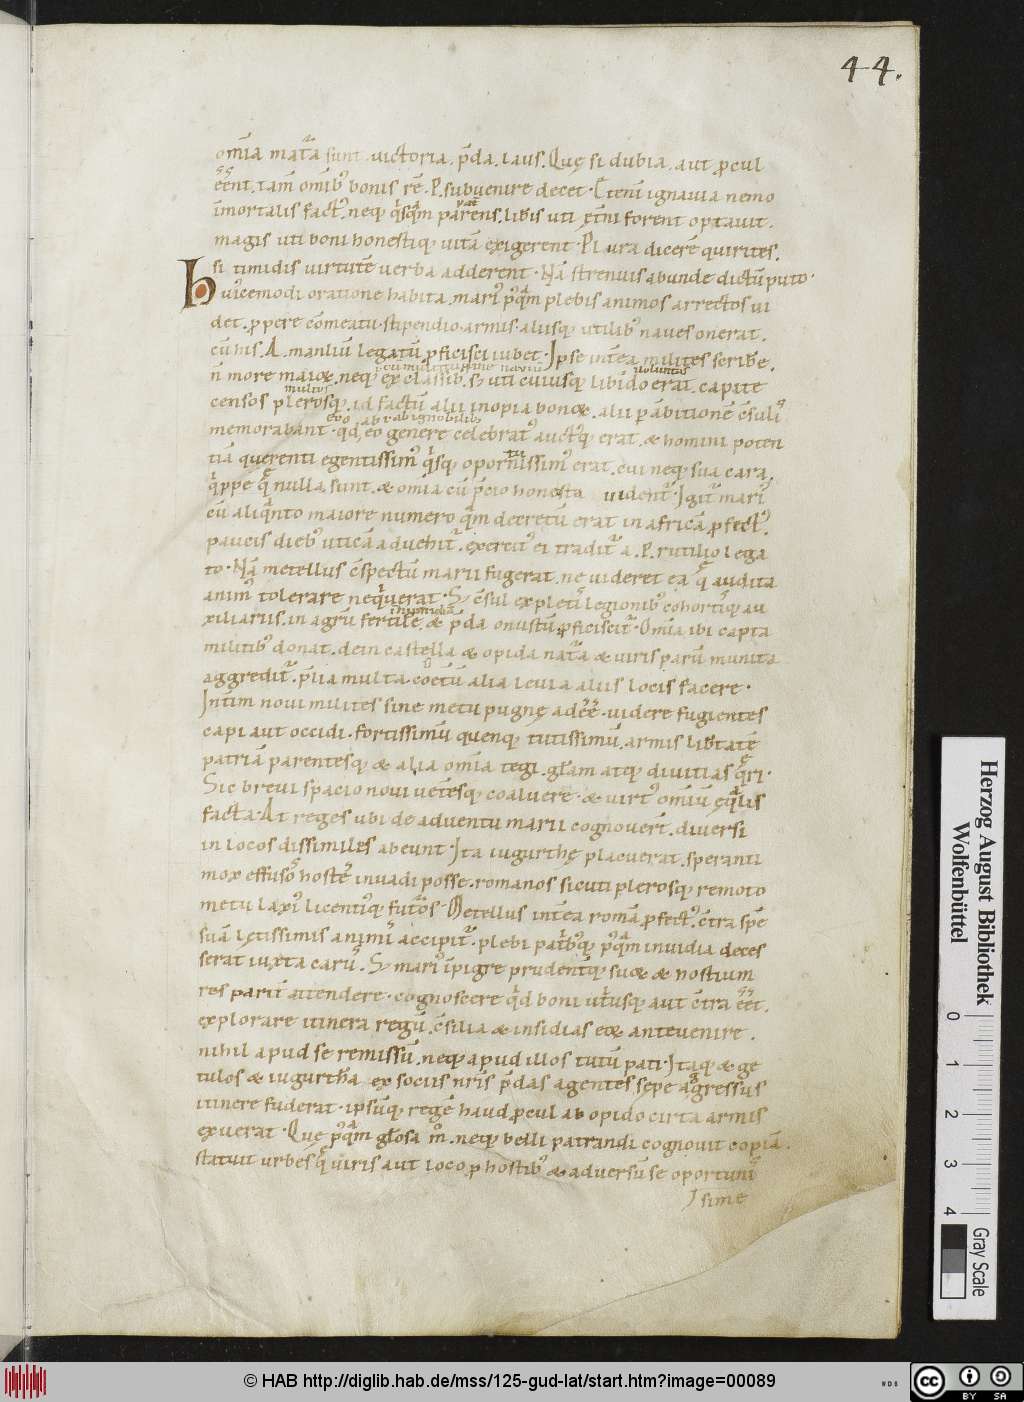 44.
om̄ia mat̄a sunt. victoria. p̄da. laus. Quę si dubia. aut ꝓcul
eent. tam̄ om̄ibꝰ bonis rē. P. subvenire decet. Eteni ignavia nemo
īmortalis factꝰ. neqꝫ q̇sq̄m parens. lib̄is uti et̄ni forent optavit.
magis uti boni honestiqꝫ vitā exigerent. Pl ura dicerē quirites.
si timidis virtutē verba adderent. Nā strenuis abunde dictū puto.
hviꝰcemodi oratione habita. mariꝰ pꝰq̄m plebis animos arrectos vi
det. ꝓpere cōmeatu. stipendio. armis. aliisqꝫ utilibꝰ naves onerat.
cū his. A. manliū legatū ꝓficisci iubet. Ipse int̄ea milites scribe̅.
voluntas
n̄ more maioꝝ. neqꝫ ex classibꝰ. sꝫ uti cuiusqꝫ libido erat. capite
multos
censos plerosqꝫ. id factū alii inopia bonoꝝ. alii ꝑ ābitionē c̄suliꝰ
ab ignobilibꝰ
memorabant. qd̄ eo genere celebratꝰ auctꝰqꝫ erat. & homini poten
tiā querenti egentissimꝰ q̇sqꝫ oportunissimꝰ erat. cui neqꝫ sua cara.
q̇ppe q̨ nulla sunt. & om̄ia cū p̄cio honesta vident᷑. Igit᷑ mariꝰ
cū aliq̄nto maiore numero q̄m decretū erat in africā ꝓfectꝰ.
paucis diebꝰ uticā advehit᷑. exercitꝰ ei tradit᷑ a. P. rutilio lega
to. Nā metellus c̄spectū marii fugerat. ne videret ea q̨ audita
animꝰ tolerare neq̇verat. Sꝫ c̄sul expletis legionibꝰ cohortibꝰqꝫ au
xiliariis. in agrū fertilē. & p̄da onustū ꝓficiscit᷑. Om̄ia ibi capta
militibꝰ donat. dein castella & opida nat᷑a & viris parū munita
aggredit᷑. p̄lia multa. cet̄um alia levia aliis locis facere.
Int̄im novi milites sine metu pugnę adeē. videre fugientes
capi aut occidi. fortissimū quenqꝫ tutissimū. armis lib̄tatē
patriā parentesqꝫ & alia om̄ia tegi. gl̄am atqꝫ divitias q̨ri.
Sic brevi spacio novi vet̄esqꝫ coaluere. & virtꝰ omniū ęq̄lis
facta. At reges ubi de adventu marii cognover̄t. diversi
in locos dissimiles abeunt. Ita iugurthę placuerat. speranti
mox effusos hostes invadi posse. romanos sicuti plerosqꝫ remoto
metu laxiꝰ licentiꝰqꝫ fut᷑os. Metellus int̄ea romā ꝓfectꝰ. c̄tra spē
suā lętissimis animis accipit᷑. plebi pat̄bꝰqꝫ pꝰq̄m invidia deces
serat iuxta carꝰ. Sꝫ mariꝰ īpigre prudent̄qꝫ suoꝝ & hostium
res parit̄ attendere. cognoscere q̇d boni ut̄usqꝫ aut c̄tra eet.
explorare itinera regū. c̄silia & insidias eoꝝ antevenire.
nihil apud se remissū. neqꝫ apud illos tutū pati. Itaqꝫ & ge
tulos & iugurthā ex sociis nr̄is p̄das agentes sępe aggressus
itinere fuderat. ipsūqꝫ regē haud ꝓcul ab opido cirta armis
exuerat. Quę pꝰq̄m gl̄osa mͦ. neqꝫ belli patrandi cognovit copiā.
statuit urbes q̨ viris aut loco ꝓ hostibꝰ & adversū se oportuni
sime
Herzog August Bibliothek
Wolfenbüttel
0 1 2 3 4
Gray Scale
© HAB http://diglib.hab.de/mss/125-gud-lat/start.htm?image=00089
WDB
cc BY SA